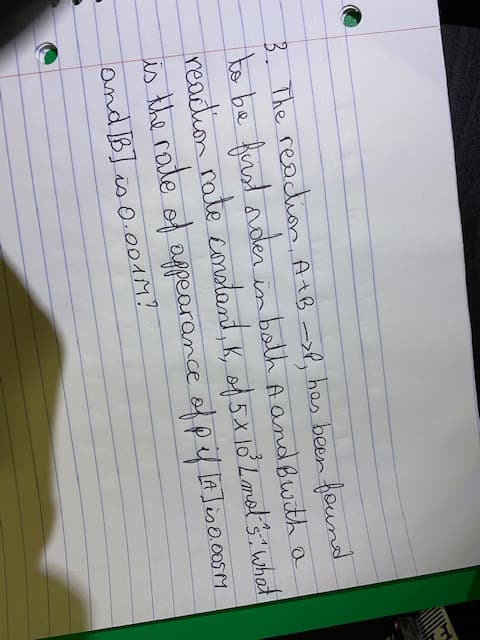 3. The reaction, A+B →P, has been found
to be first order in both A and B with a
reaction rate constant, K, of 5×10³ L mol⁻¹s⁻¹. what
is the rate of appearance of P if [A] is 0.005M
and [B] is 0.001M?